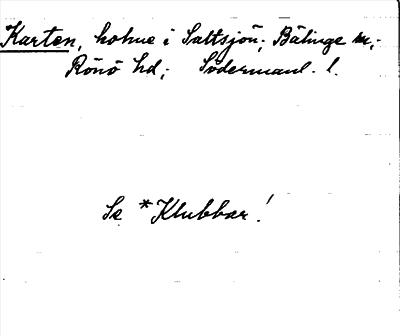 Karten, holme i Saltsjön; Bälinge sn;
Rönö hd; Södermanl. l.
Se *Klubbar!